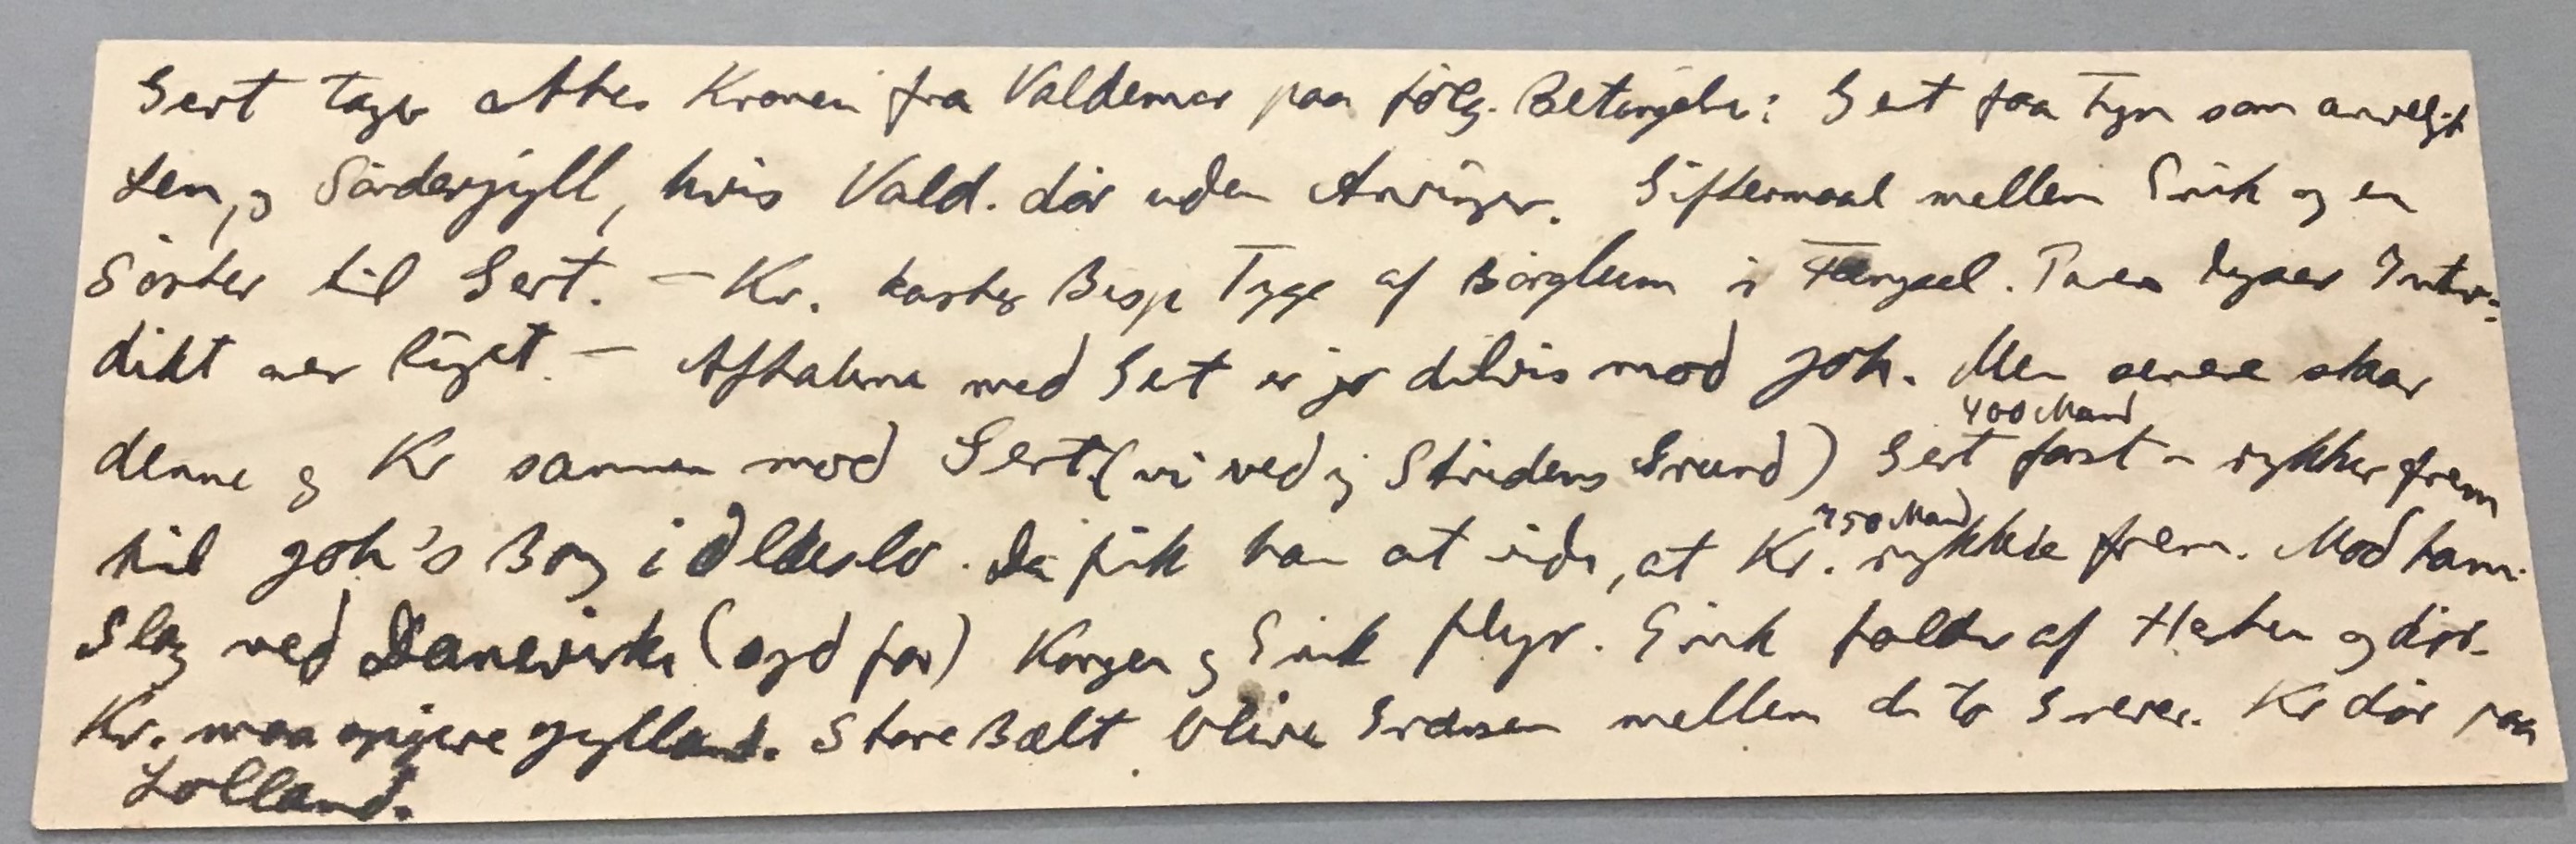 Gert tager atter Kronen fra Valdemar paa følg. Betingelse: Gert faar Fyn som arveligt
Len, og Sønderjyll, hvis Vald. dør uden Arvinger. Giftermaal mellem Erik og en
Søster til Gert. – Kr. kaster Bisp Tyge af Børglum i Fængsel. Paven lyser Inter-
dikt over Riget. – Aftalerne med Gert er jo delvis mod Joh. Men senere staar
denne og Kr sammen mod Gert. (vi ved ej Stridens Grund) Gert først – rykker frem
400 Mand
til Joh's Borg i Oldeslo. Da fik han at vide, at Kr. rykkede frem. Mod ham.
750 Mand
Slag ved Danevirke (syd for) Kongen og Erik flyr. Erik falder af Hesten og dør.
Kr. maa opgive Jylland. Store Bælt blive Grænsen mellem de to Grever. Kr dør paa
Lolland.